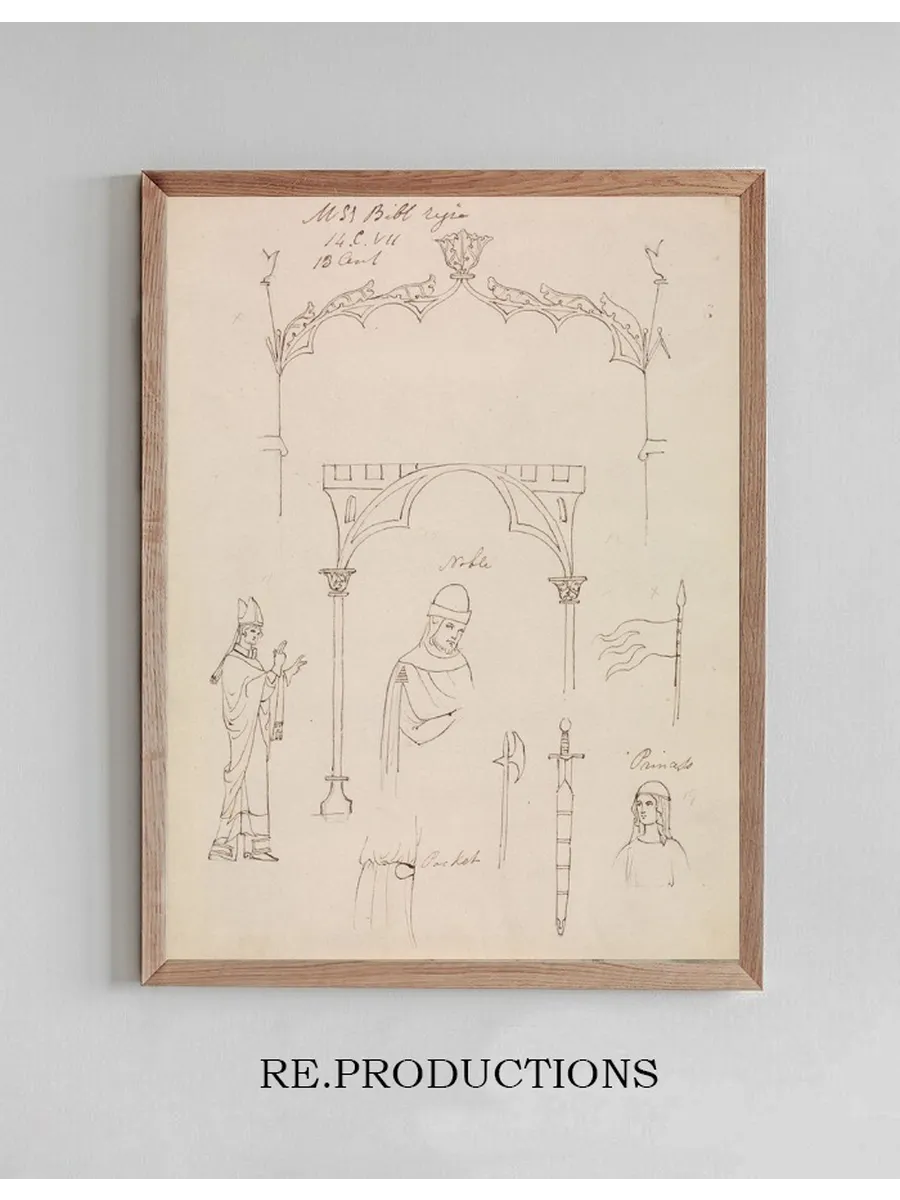 MSS Bibl regia
14.C.VII
13 Cent
Noble
Princess
Pocket
RE.PRODUCTIONS